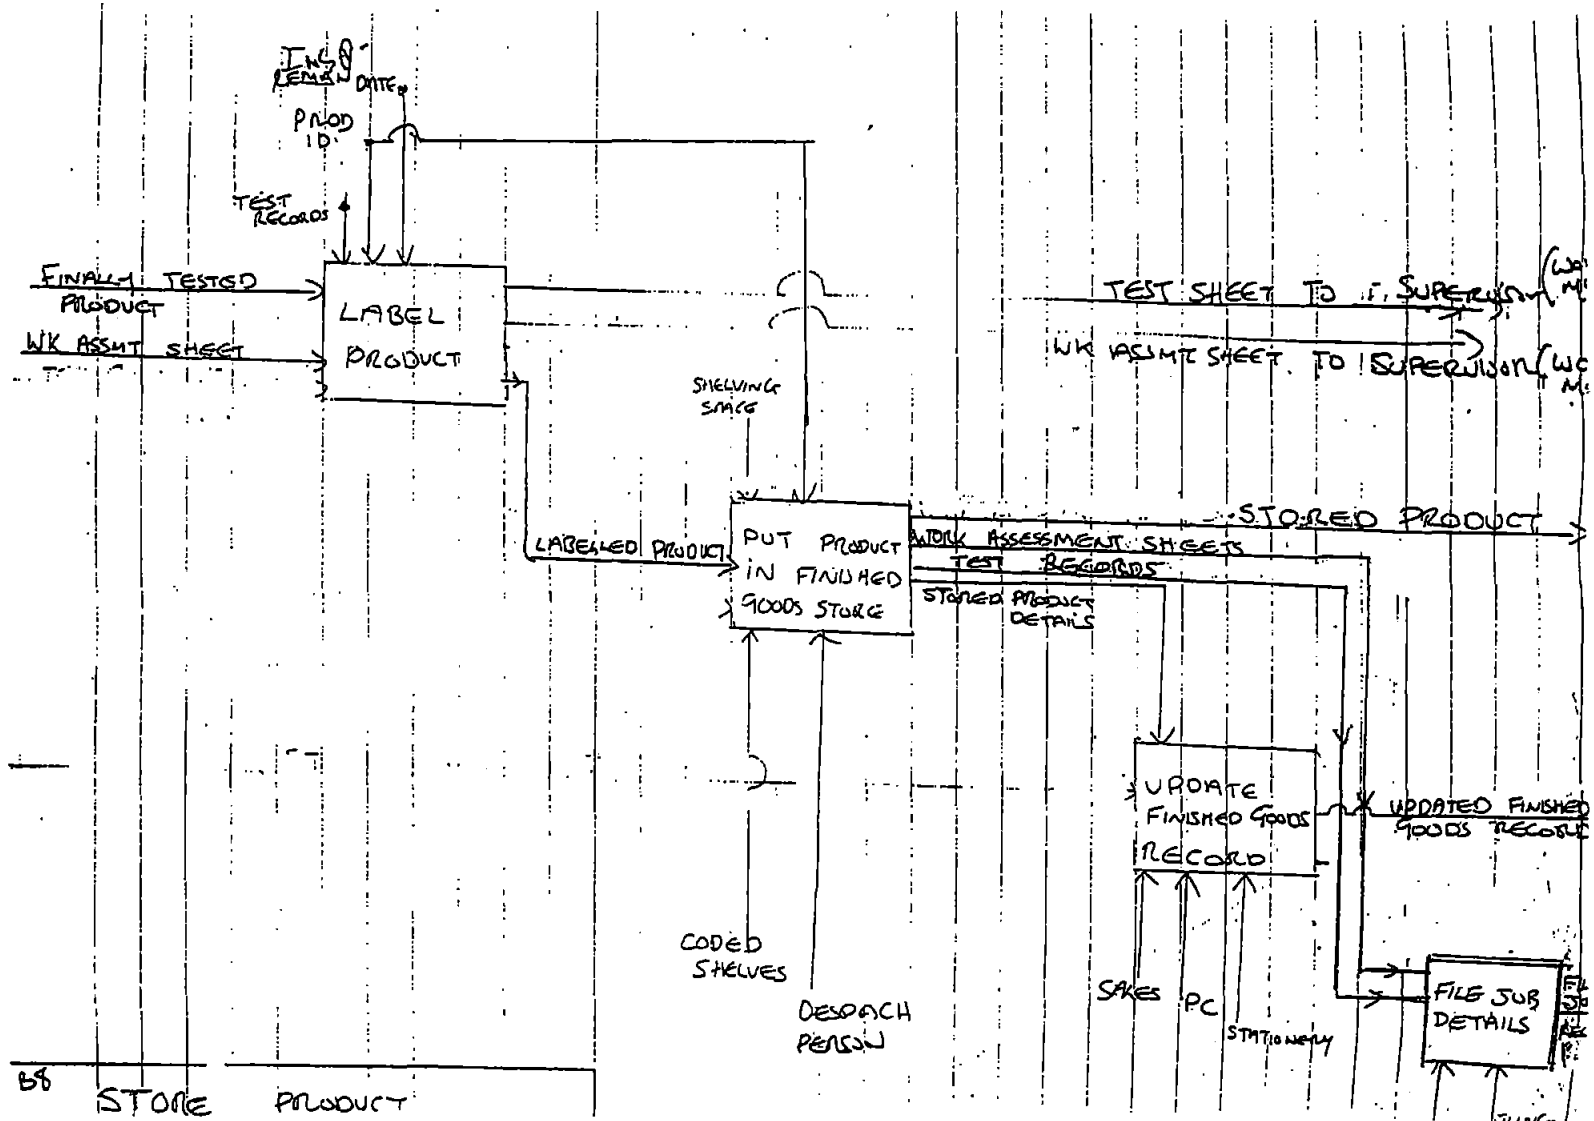 DATE
PROD
ID.
TEST
RECORDS
FINALLY TESTED
PRODUCT
WK ASSMT SHEET
LABEL
PRODUCT
TEST SHEET TO SUPERVISION
WK ASSMT SHEET TO SUPERVISION
SHELVING
SPACE
LABELLED PRODUCT
PUT PRODUCT
IN FINISHED
GOODS STORE
STORED PRODUCT
WORK ASSESSMENT SHEETS
TEST RECORDS
STORED PRODUCT
DETAILS
UPDATE
FINISHED GOODS
RECORD
UPDATED FINISHED
GOODS RECORD
CODED
SHELVES
DESPATCH
PERSON
SALES
PC
STATIONERY
FILE JOB
DETAILS
B8
STORE PRODUCT